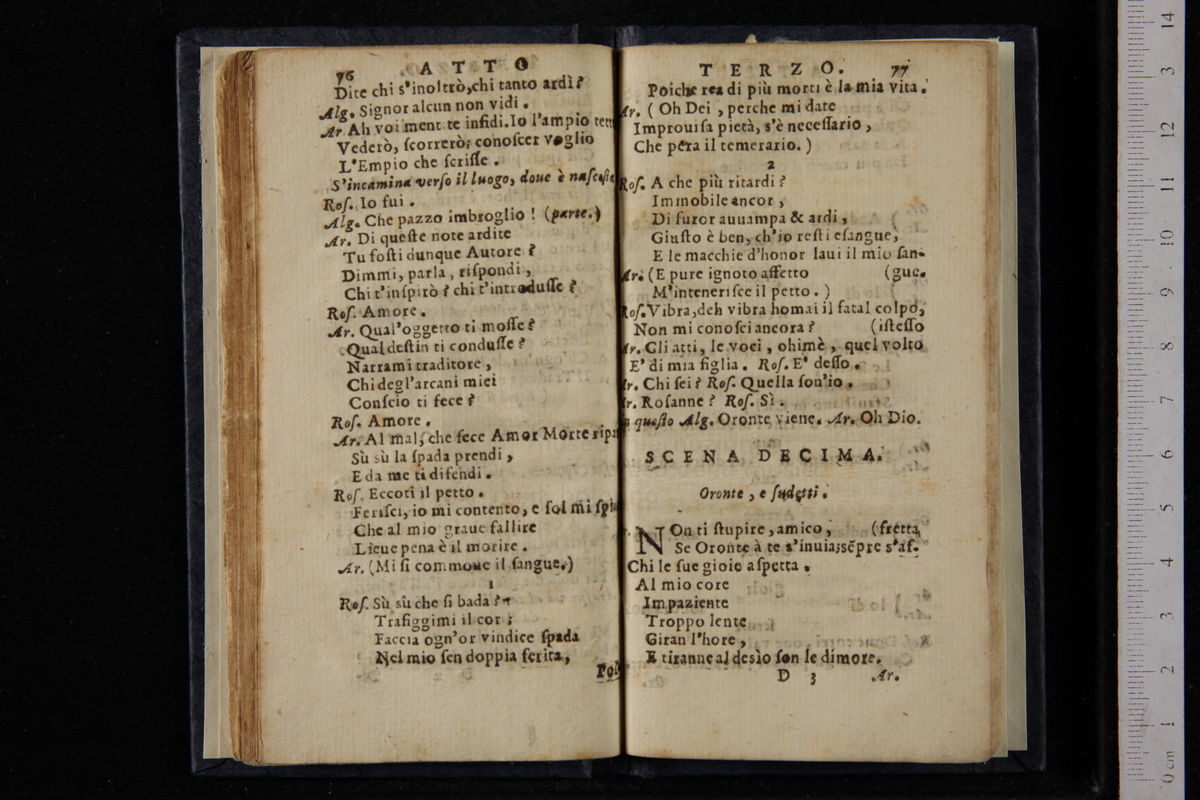 76 ATTO
Dite chi s'inoltrò, chi tanto ardì?
Alg. Signor alcun non vidi.
Ar Ah voi ment te infidi. Io l'ampio tett
Vederò, ſcorrerò; conoſcer voglio
L'Empio che ſcriſſe.
S'incamina verſo il luogo, doue è naſcoſta
Roſ. Io fui.
Alg. Che pazzo imbroglio! (parte.)
Ar. Di queſte note ardite
Tu foſti dunque Autore?
Dimmi, parla, riſpondi,
Chi t'inſpirò? chi t'introduſſe?
Roſ. Amore.
Ar. Qual'oggetto ti moſſe?
Qual deſtin ti conduſſe?
Narrami traditore,
Chi degl'arcani miei
Conſcio ti fece?
Roſ. Amore.
Ar. Al mal, che fece Amor Morte ripa
Sù sù la ſpada prendi,
E da me ti difendi.
Roſ. Eccoti il petto.
Feriſci, io mi contento, e ſol mi ſpi
Che al mio graue fallire
Lieue pena è il morire.
Ar. (Mi ſi commoue il ſangue.)
1
Roſ. Sù sù che ſi bada?
Trafiggimi il cor;
Faccia ogn'or vindice ſpada
Nel mio ſen doppia ferita,
Poi
TERZO. 77
Poiche rea di più morti è la mia vita.
Ar. (Oh Dei, perche mi date
Improuiſa pietà, s'è neceſſario,
Che pera il temerario.)
2
Roſ. A che più ritardi?
Immobile ancor,
Di furor auuampa & ardi,
Giuſto è ben, ch'io reſti eſangue,
E le macchie d'honor laui il mio ſan-
Ar. (E pure ignoto affetto (gue.
M'inteneriſce il petto.)
Roſ. Vibra, deh vibra homai il fatal colpo,
Non mi conoſci ancora? (iſteſſo
Ar. Gli atti, le voci, ohimè, quel volto
E' di mia figlia. Roſ. E' deſſo.
Ar. Chi ſei? Roſ. Quella ſon'io.
Ar. Roſanne? Roſ. Sì.
In queſto Alg. Oronte viene. Ar. Oh Dio.
SCENA DECIMA.
Oronte, e ſudetti.
NOn ti ſtupire, amico, (fretta
Se Oronte à te s'inuia; sẽpre s'af-
Chi le ſue gioie aſpetta.
Al mio core
Impaziente
Troppo lente
Giran l'hore,
E tiranne al desìo ſon le dimore.
D 3 Ar.
0 cm 1 2 3 4 5 6 7 8 9 10 11 12 3 14